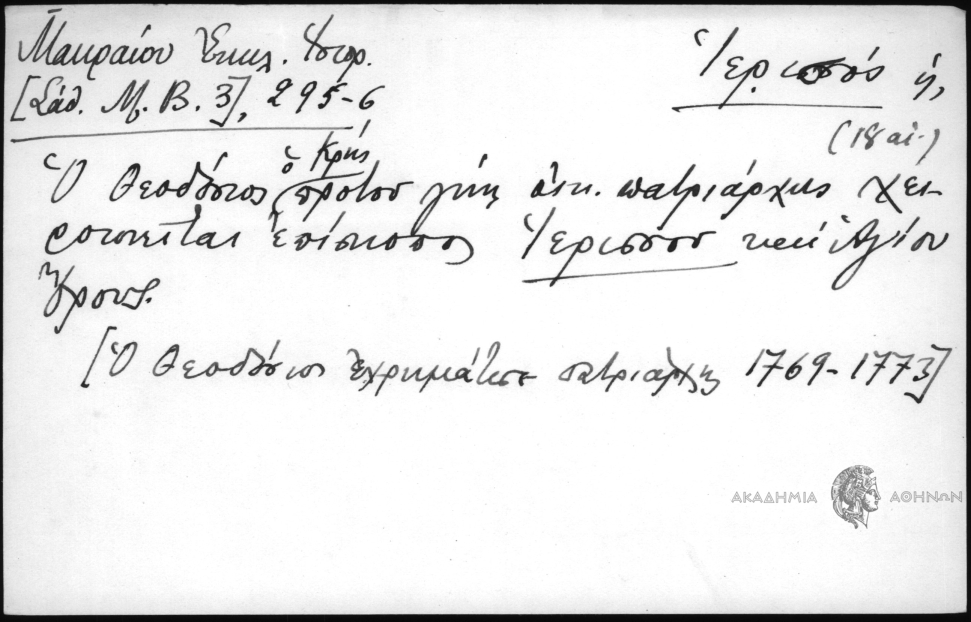 Μακραίου Ἐκκλ. Ἱστορ.
[Σάθ. Μ. Β. 3], 295-6
Ἱερισσός ἡ,
(18 αἰ.)
Ὁ Θεοδόσιος ὁ Κρής πρὸ τοῦ γίνῃ οἰκ. πατριάρχης χει-
ροτονεῖται ἐπίσκοπος Ἱερισσοῦ καὶ Ἁγίου
Ὄρους.
[Ὁ Θεοδόσιος ἐχρημάτισε πατριάρχης 1769-1773]
ΑΚΑΔΗΜΙΑ ΑΘΗΝΩΝ